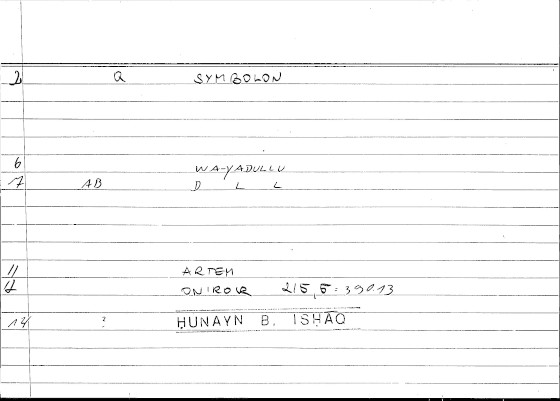 2 Q SYMBOLON
6 WA-YADULLU
7 AB D L L
11 ARTEM
12 ONIROCR 215,5 = 390.13
14 ? ḤUNAYN B. ISḤĀQ